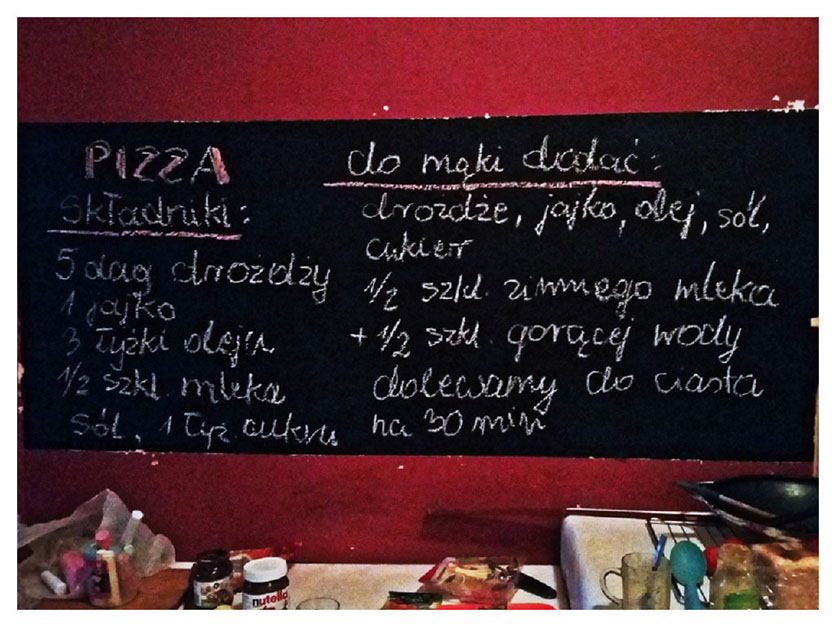 PIZZA
Składniki:
5 dag drożdży
1 jajko
3 łyżki oleju
1/2 szkl. mleka
sól, 1 łyż cukru
do mąki dodać:
drożdże, jajko, olej, sól,
cukier
1/2 szkl. zimnego mleka
+ 1/2 szkl. gorącej wody
dolewamy do ciasta
na 30 min
nutella